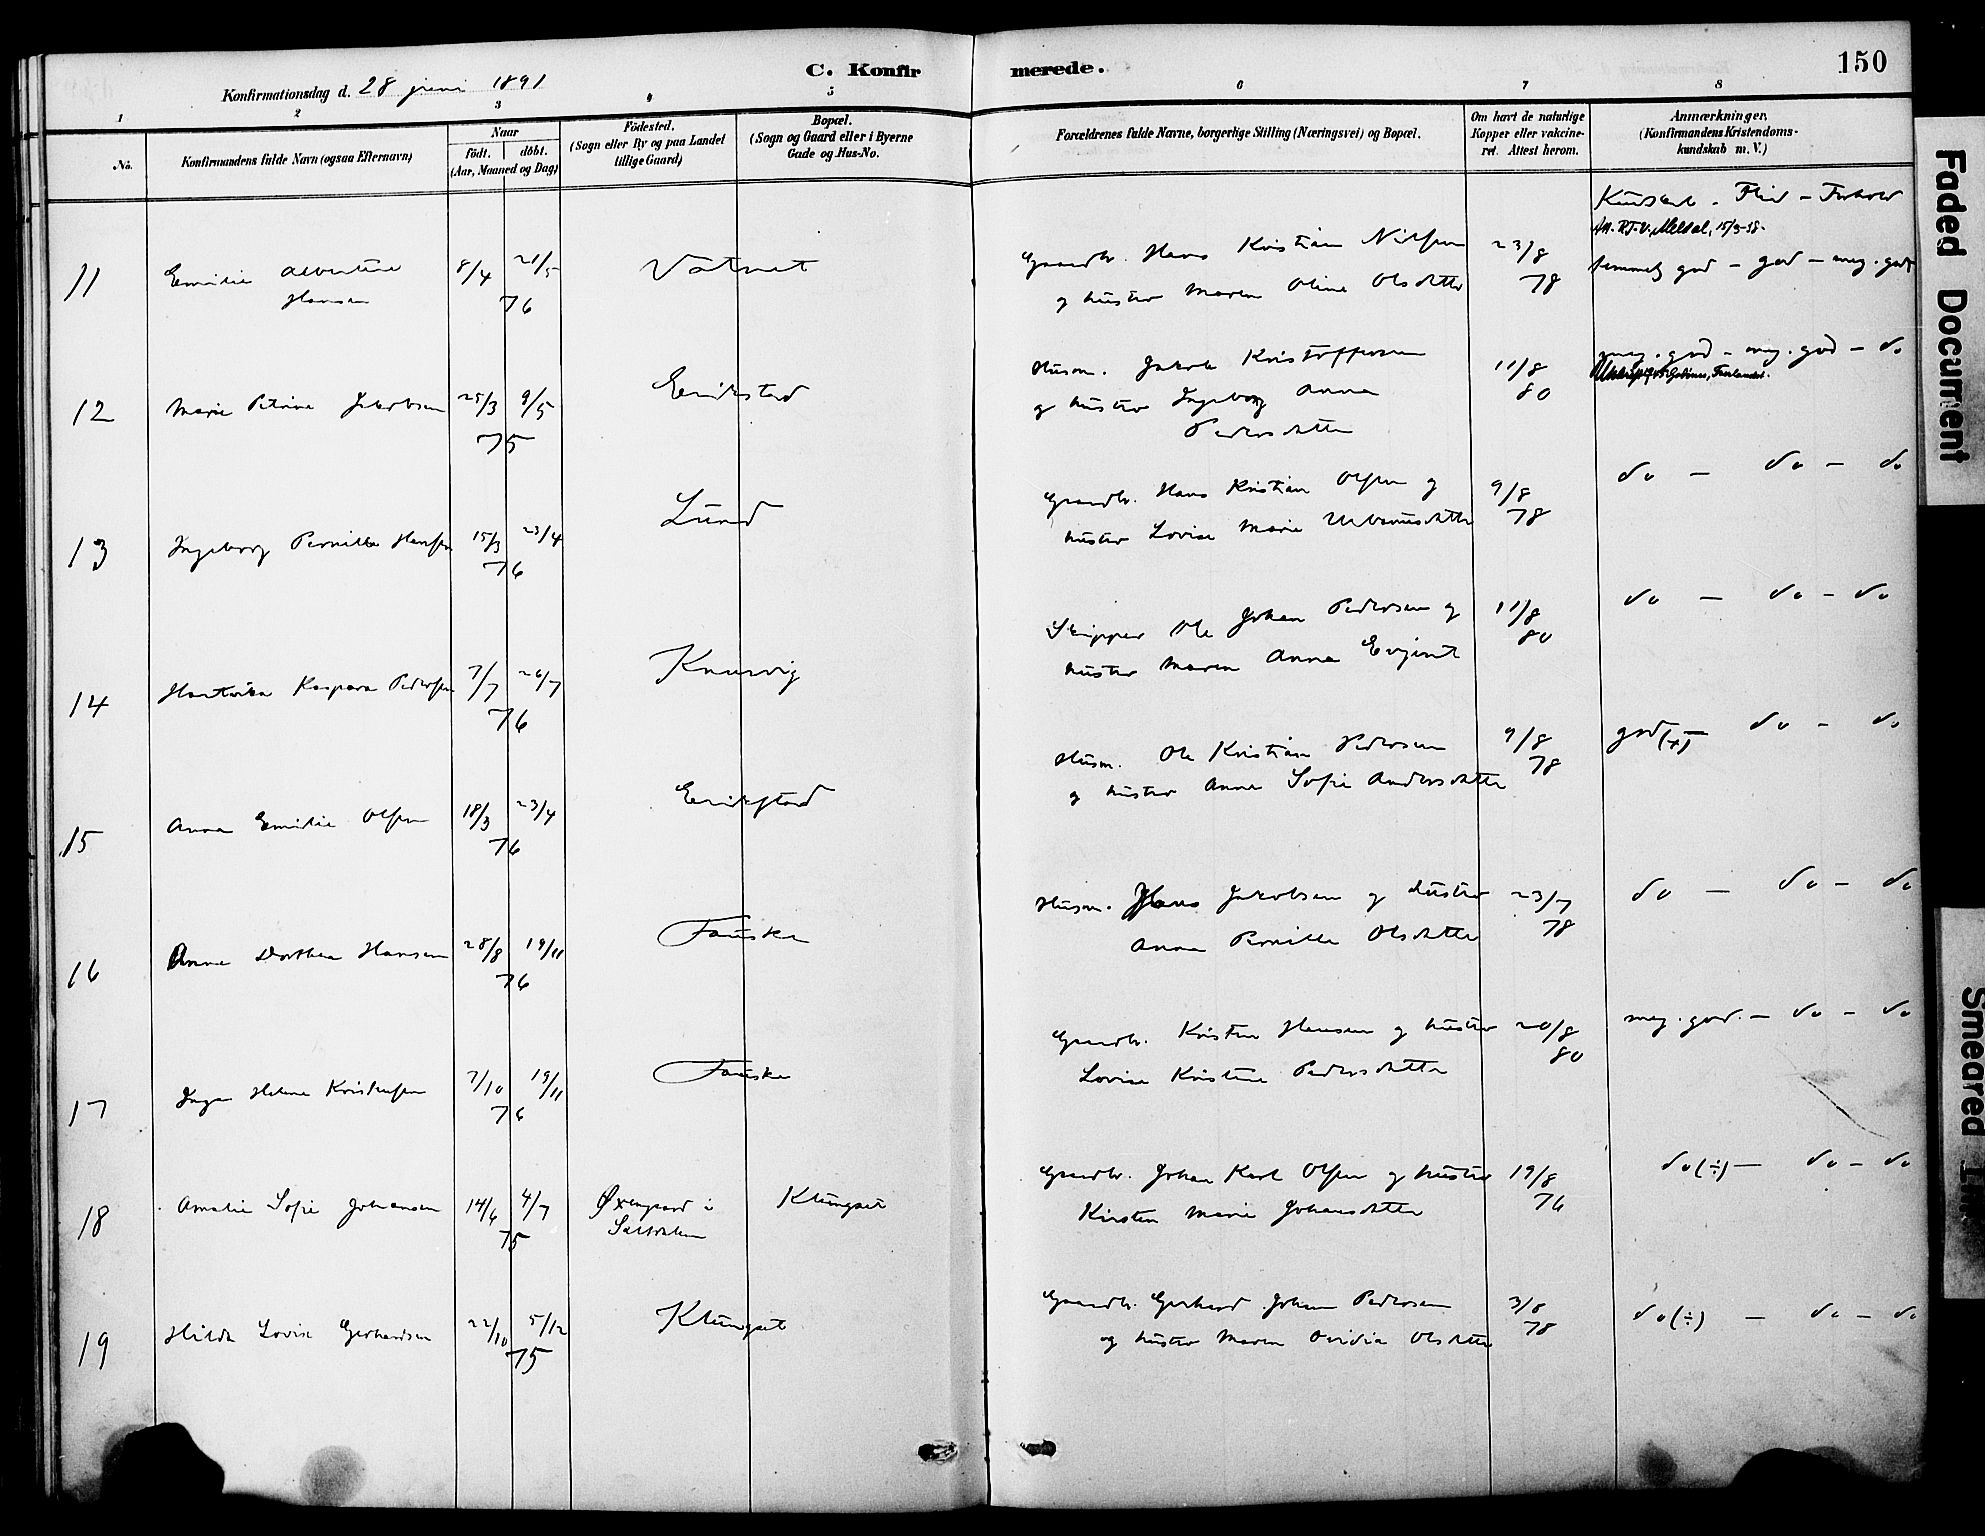 C. Konfirmerede.
150
Konfirmationsdag d. 28 juni 1891
1 2 3 4 5 6 7 8
No.
Konfirmandens fulde Navn (ogsaa Efternavn)
Naar
födt. döbt.
(Aar, Maaned og Dag)
Födested.
(Sogn eller By og paa Landet
tillige Gaard)
Bopæl.
(Sogn og Gaard eller i Byerne
Gade og Hus-No.
Forældrenes fulde Navne, borgerlige Stilling (Næringsvei) og Bopæl.
Om havt de naturlige
Kopper eller vakcine-
ret. Attest herom.
Anmærkninger.
(Konfirmandens Kristendoms-
kundskab m. V.)
Kundskab - Flid - Forhold
15/3-58.
11 Emilie Albertine 8/4 21/5 Vatnet Gaardbr. Hans Kristian Nilsen 23/8 temmelig god - god - meg. god
Hansen 76 og hustru Maren Oline Olsdatter 78
meg. god - meg. god - do
12 Marie Petrine Jakobsen 25/3 9/5 Erikstad Husm. Jakob Kristoffersen 11/8
75 og hustru Ingeborg Anna 80
Pedersdatter
13 Ingeborg Pernille Hansen 15/3 23/4 Lund Gaardbr. Hans Kristian Olsen og 9/8 do - do - do
76 hustru Lovise Marie Urbanusdatter 78
14 Hartvika Kaspara Pedersen 7/7 26/7 Knarvig Skipper Ole Johan Pedersen og 11/8 do - do - do
76 hustru Maren Anna 80
15 Anna Emilie Olsen 18/3 23/4 Erikstad Husm. Ole Kristian Pedersen 9/8 god (+) - do - do
76 og hustru Anna Sofie Andersdatter 78
16 Anna Dorthea Hansen 28/8 19/11 Fauske Husm. Hans Jakobsen og hustru 23/7 do - do - do
76 Anna Pernille Olsdatter 78
17 Inga Helene Kristensen 7/10 19/11 Fauske Gaardbr. Kristen Hansen og hustru 20/8 meg. god. - do - do
76 Lovise Kristine Pedersdatter 80
18 Amalie Sofie Johansen 14/6 4/7 Øxengaard i Klungset Gaardbr. Johan Karl Olsen og hustru 19/8 do (÷) - do - do
75 Saltdalen Kirsten Marie Johansdatter 76
19 Hilda Lovise Gerhardsen 22/10 5/12 Klungset Gaardbr. Gerhard Johan Pedersen 3/8 do (÷) - do - do
75 og hustru Maren Ovidia Olsdatter 78
Faded Document
Smeared Ink